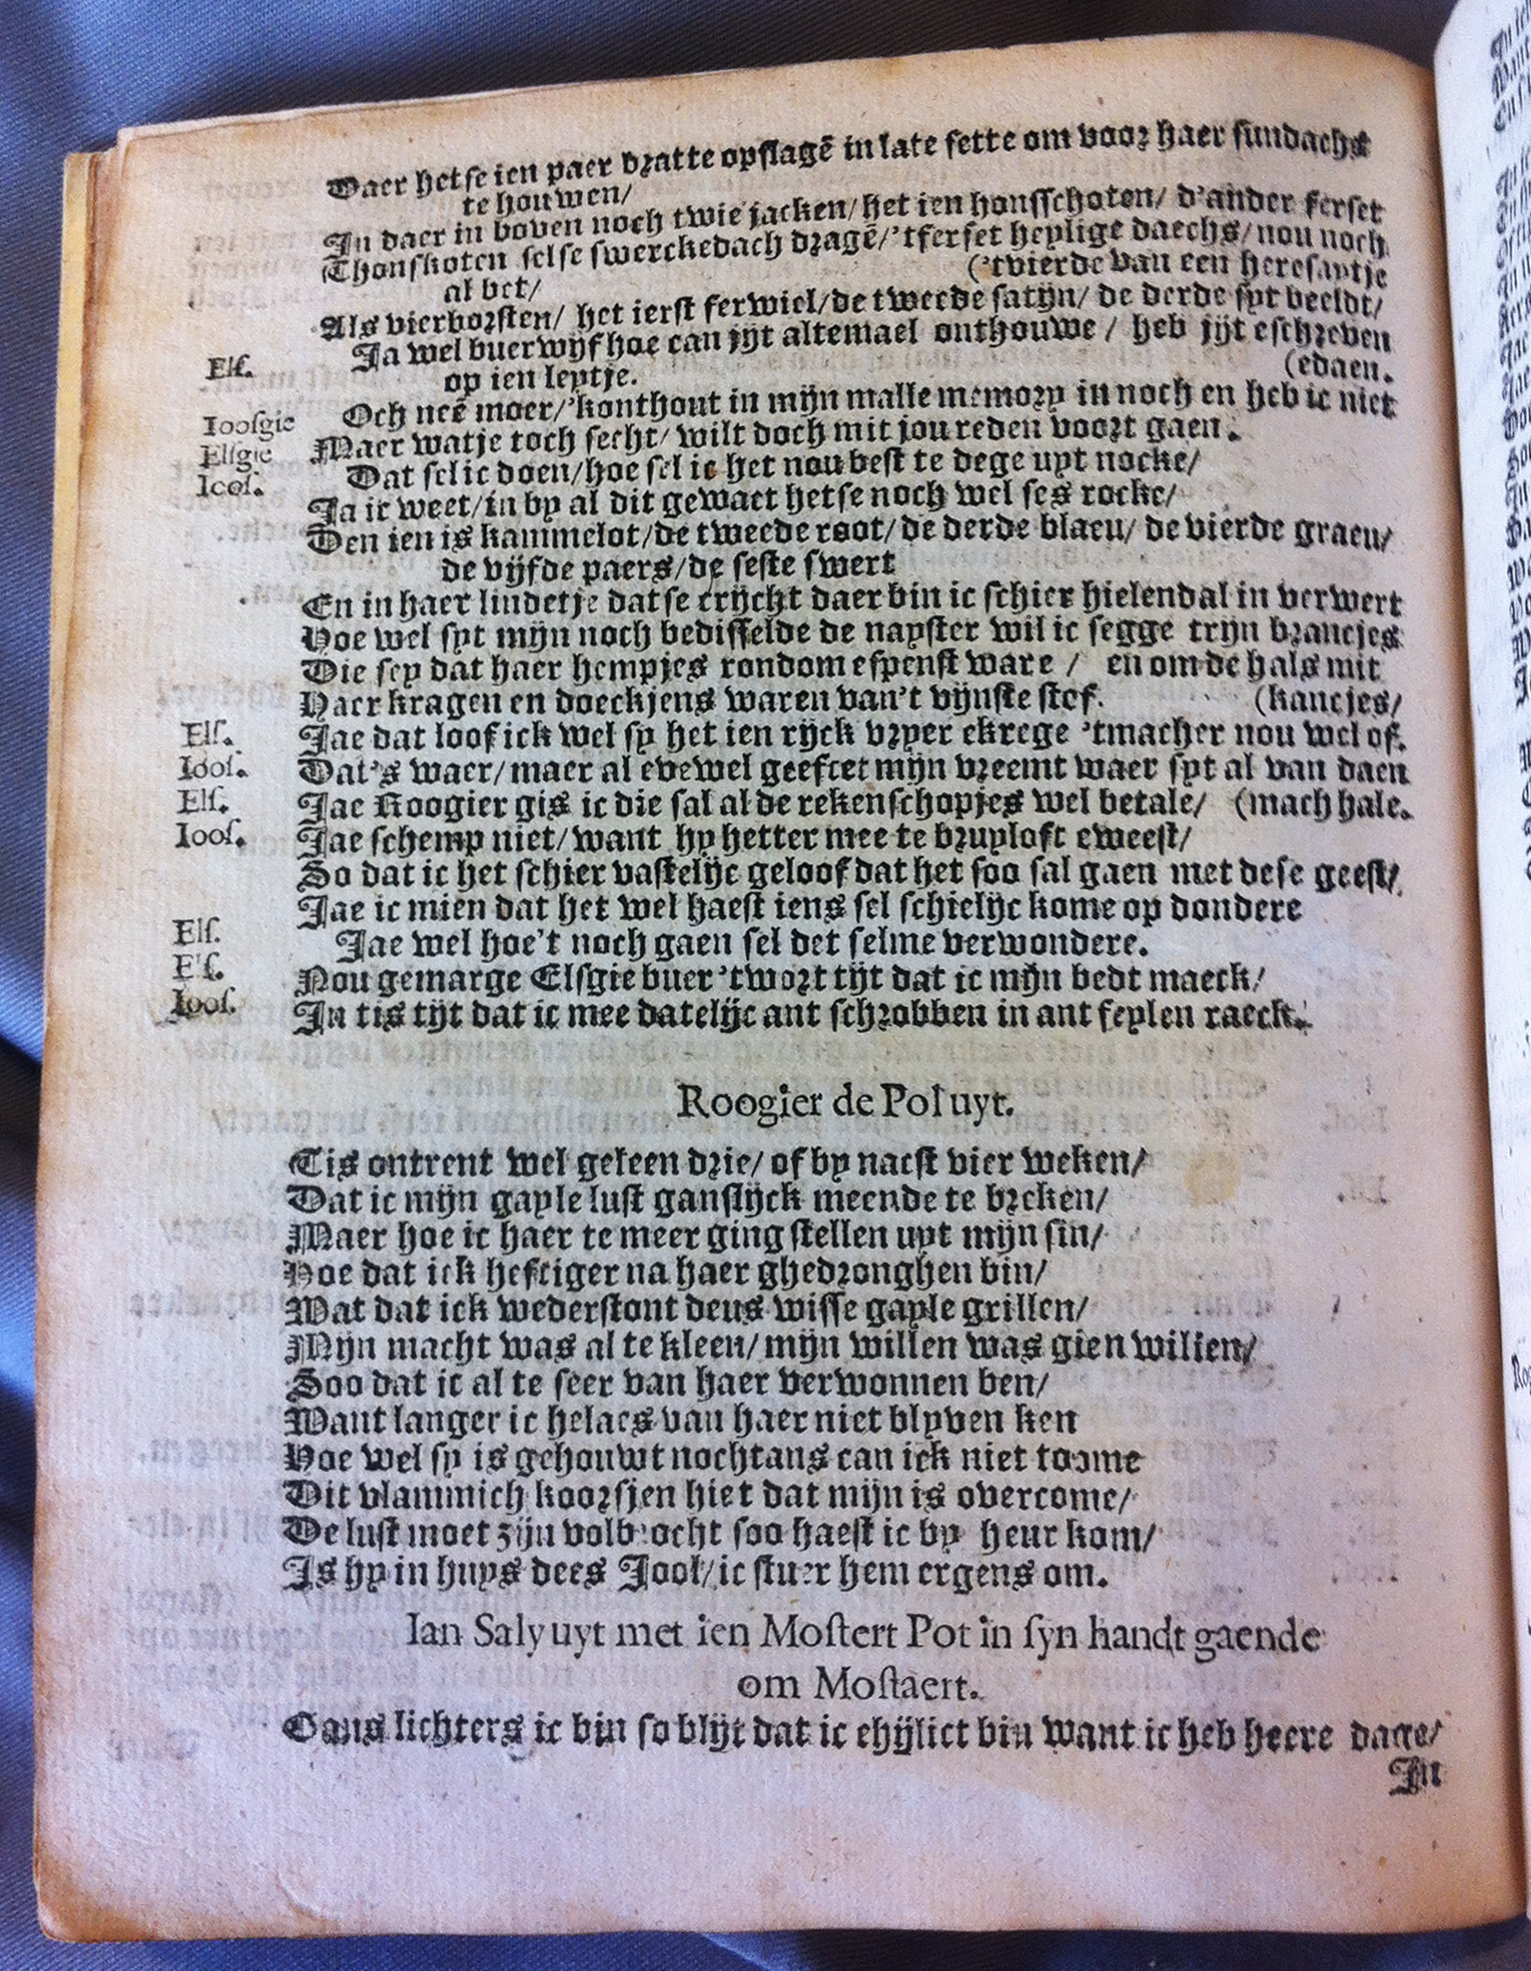 Daer hetse ien paer dratte opslagē in late sette om voor haer sundachs
te houwen/
In daer in boven noch twie jacken/ het ien honsschoten/ d'ander ferset
Thonskoten selse swerckedach dragē/ 'tferset heylige daechs/ nou noch
al bet/ ('tvierde van een heresaytje
Als vierborsten/ het ierst ferwiel/ de tweede satijn/ de derde syt beeldt/
Elf. Ja wel buerwijf hoe can jyt altemael onthouwe / heb jijt eschreven
op ien leytje. (edaen.
Ioosgie Och neē moer/ 'konthout in mijn malle memory in noch en heb ic niet
Elsgie Maer watje toch secht/ wilt doch mit jou reden voort gaen.
Icos. Dat sel ic doen/ hoe sel ic het nou best te dege uyt nocke/
Ja ic weet/ in by al dit gewaet hetse noch wel ses rocke/
Den ien is kammelot/ de tweede root/ de derde blaeu/ de vierde graeu/
de vijfde paers/ de seste swert
En in haer lindetje datse crijcht daer bin ic schier hielendal in verwert
Hoe wel syt mijn noch bediffelde de nayster wil ic segge trijn brancjes
Die sey dat haer hempjes rondom espenst ware / en om de hals mit
Haer kragen en doeckjens waren van't vijnste stof. (kancjes/
Els. Jae dat loof ick wel sy het ien rijck vryer ekrege 'tmacher nou wel of.
Ioos. Dat's waer/ maer al evewel geefcet mijn vreemt waer syt al van daen
Els. Jae Roogier gis ic die sal al de rekenschopjes wel betale/ (mach hale.
Ioos. Jae schemp niet/ want hy hetter mee te bruyloft eweest/
So dat ic het schier vastelijc geloof dat het soo sal gaen met dese geest/
Jae ic mien dat het wel haest iens sel schielijc kome op dondere
Els. Jae wel hoe't noch gaen sel det selme verwondere.
E's. Nou gemarge Elsgie buer 'twort tijt dat ic mijn bedt maeck/
Ioos. In tis tijt dat ic mee datelijc ant schrobben in ant feylen raeck.
Roogier de Pol uyt.
Tis ontrent wel geleen drie/ of by naest vier weken/
Dat ic mijn gayle lust ganslijck meende te breken/
Maer hoe ic haer te meer ging stellen uyt mijn sin/
Hoe dat ick heftiger na haer ghedronghen bin/
Wat dat ick wederstont deus wisse gayle grillen/
Mijn macht was al te kleen/ mijn willen was gien willen/
Soo dat ic al te seer van haer verwonnen ben/
Want langer ic helaes van haer niet blyven ken
Hoe wel sy is gehouwt nochtans can ick niet toome
Dit vlammich koorsjen hiet dat mijn is overcome/
De lust moet zijn volbrocht soo haest ic by heur kom/
Is hy in huys dees Jool/ ic stuer hem ergens om.
Ian Saly uyt met ien Mostert Pot in syn handt gaende
om Mostaert.
Gans lichters ic bin so blijt dat ic ehijlict bin want ic heb heere dage/
In